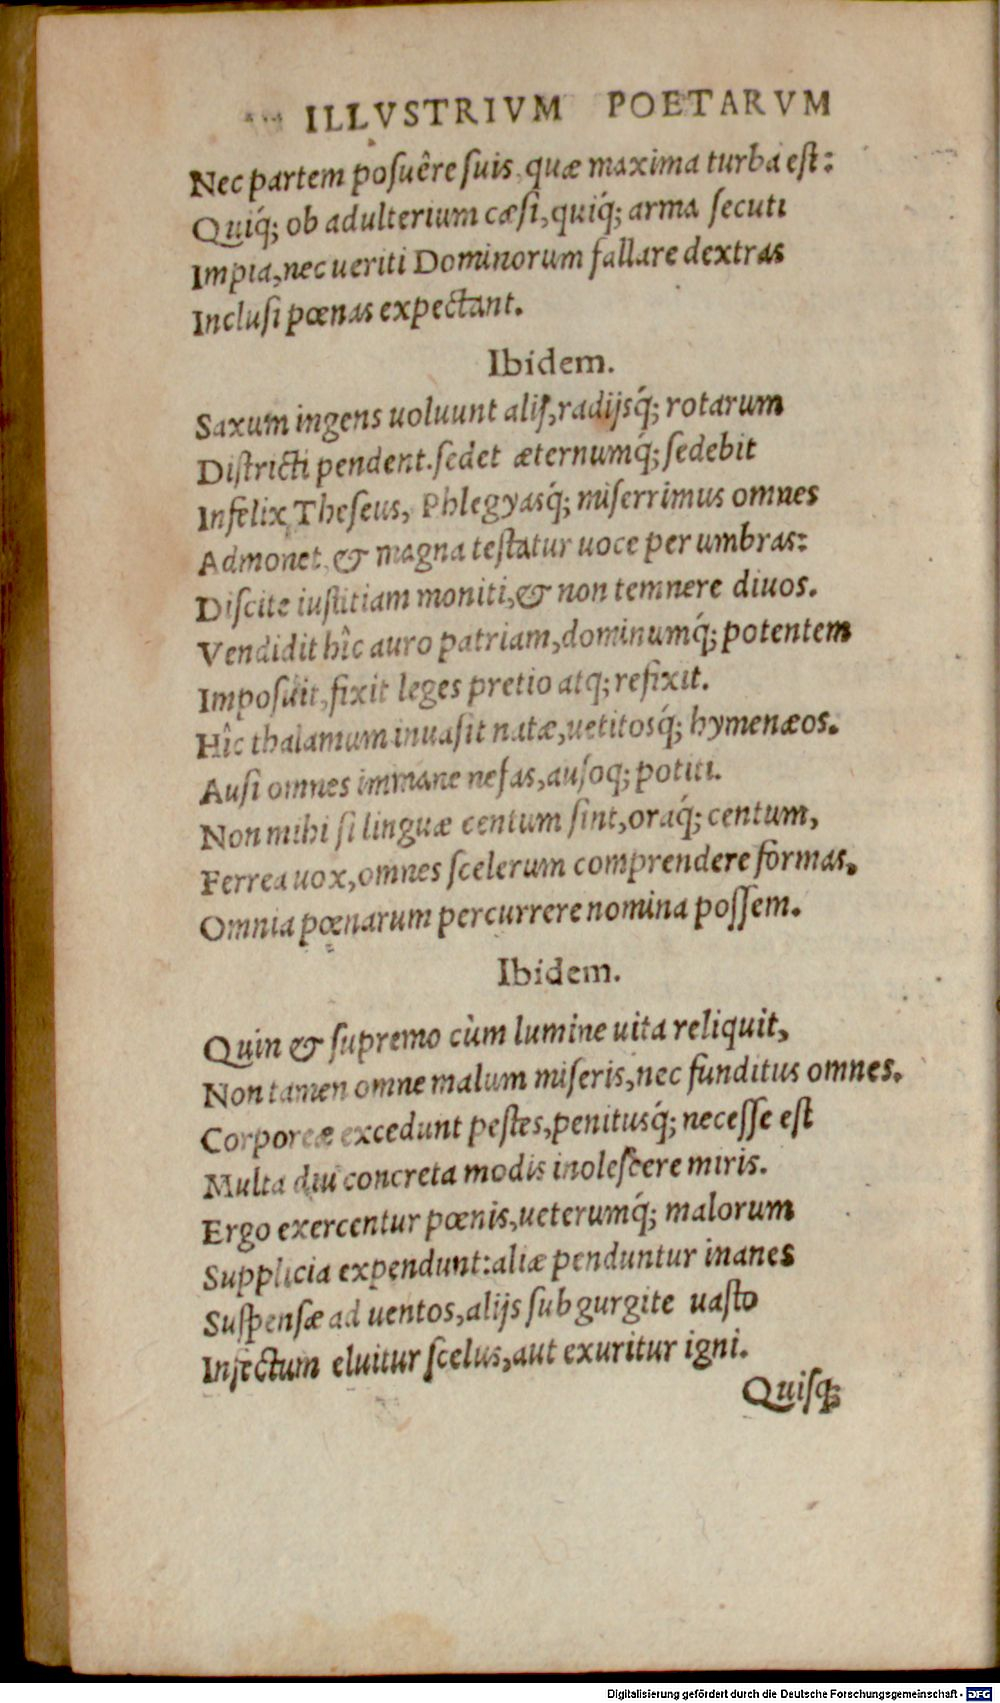 ILLVSTRIVM POETARVM
Nec partem posuêre suis, quæ maxima turba est:
Quiq́; ob adulterium cæsi, quiq́; arma secuti
Impia, nec ueriti Dominorum fallare dextras
Inclusi pœnas expectant.
Ibidem.
Saxum ingens uoluunt alij, radijsq́; rotarum
Districti pendent. sedet æternumq́; sedebit
Infelix Theseus, Phlegyasq́; miserrimus omnes
Admonet, & magna testatur uoce per umbras:
Discite iustitiam moniti, & non temnere diuos.
Vendidit hîc auro patriam, dominumq́; potentem
Imposuit, fixit leges pretio atq; refixit.
Hîc thalamum inuasit natæ, uetitosq́; hymenæos.
Ausi omnes immane nefas, ausoq; potiti.
Non mihi si linguæ centum sint, oraq́; centum,
Ferrea uox, omnes scelerum comprendere formas,
Omnia pœnarum percurrere nomina possem.
Ibidem.
Quin & supremo cùm lumine uita reliquit,
Non tamen omne malum miseris, nec funditus omnes.
Corporeæ excedunt pestes, penitusq́; necesse est
Multa diu concreta modis inolescere miris.
Ergo exercentur pœnis, ueterumq́; malorum
Supplicia expendunt: aliæ penduntur inanes
Suspensæ ad uentos, alijs sub gurgite uasto
Infectum eluitur scelus, aut exuritur igni.
Quisq;
Digitalisierung gefördert durch die Deutsche Forschungsgemeinschaft - DFG